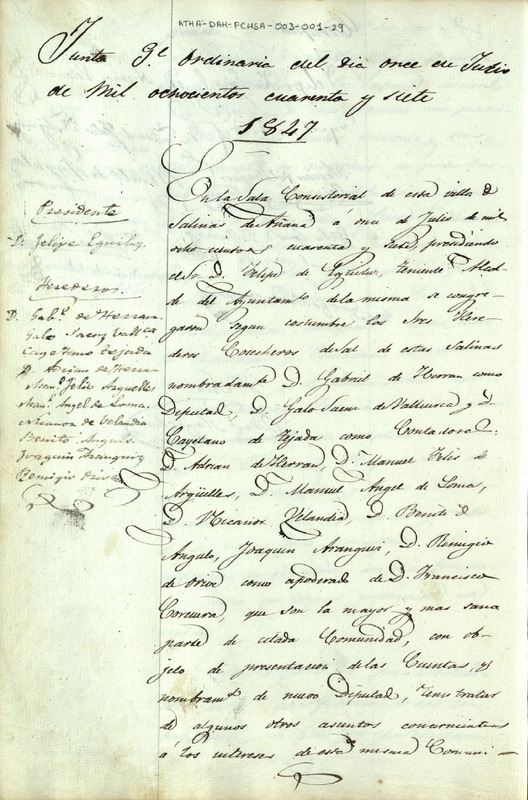 ATHA-DAH-FCHSA-003-001-29
Junta Gl. Ordinaria del Dia once de Julio
de Mil ochocientos cuarenta y siete
1847
Presidente
D. Felipe Eguiluz
Herederos
D. Gabl. de Herran
Galo Saenz Vallca
Cayetano Tejada
D. Adrian de Herran
Manl. Felix Arguelles
Manl. Angel de Loma
Nicanor de Velandia
Benito Angulo
Joaquin Aranguiz
Remigio Orive
En la Sala Consistorial de esta villa de
Salinas de Añana a once de Julio de mil
ochocientos cuarenta y siete, presidiendo
el Sr. D. Felipe de Eguiluz, Teniente Alcal-
de del Ayuntamto. de la misma se congre-
garon segun costumbre los Sres Here-
deros Cosecheros de Sal de estas Salinas
nombradamte. D. Gabriel de Herran como
Diputad, D. Galo Saenz de Valluerca y D.
Cayetano de Tejada como Contadores:
D. Adrian de Herran, D. Manuel Felix de
Argüelles, D. Manuel Angel de Loma,
D. Nicanor Velandia, D. Benito de
Angulo, Joaquin Aranguiz, D. Remigio
de Orive como apoderado de D. Francisco
Corcuera, que son la mayor y mas sana
parte de citada Comunidad, con ob-
jeto de presentacion de las Cuentas, y
nombramto. de nuevo Diputad, tratar
de algunos otros asuntos concernientes
á los intereses de esta misma Comuni-